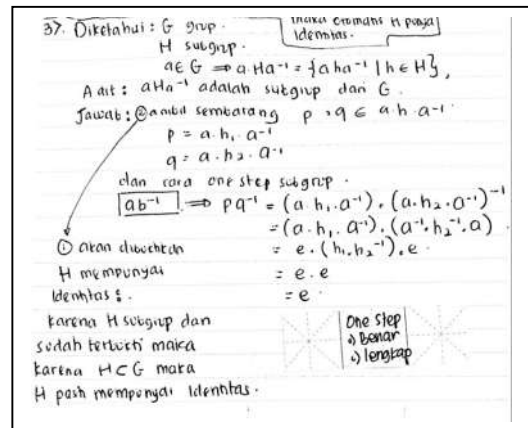 37. Diketahui : G grup.
H subgrup.
a ∈ G ⇒ a.Ha⁻¹ = {aha⁻¹ | h ∈ H},
maka otomatis H punya
Identitas.
Adit : aHa⁻¹ adalah subgrup dari G.
Jawab : ② ambil sembarang p, q ∈ a.h.a⁻¹.
p = a.h₁.a⁻¹
q = a.h₂.a⁻¹
dan cara one step subgrup.
ab⁻¹ ⇒ pq⁻¹ = (a.h₁.a⁻¹).(a.h₂.a⁻¹)⁻¹
= (a.h₁.a⁻¹).(a⁻¹.h₂⁻¹.a)
= e.(h₁.h₂⁻¹).e.
= e.e
= e
① akan dibuktikan
H mempunyai
Identitas :.
karena H subgrup dan
sudah terbukti maka
karena H⊂G maka
H pasti mempunyai Identitas.
One Step
•) Benar
•) lengkap